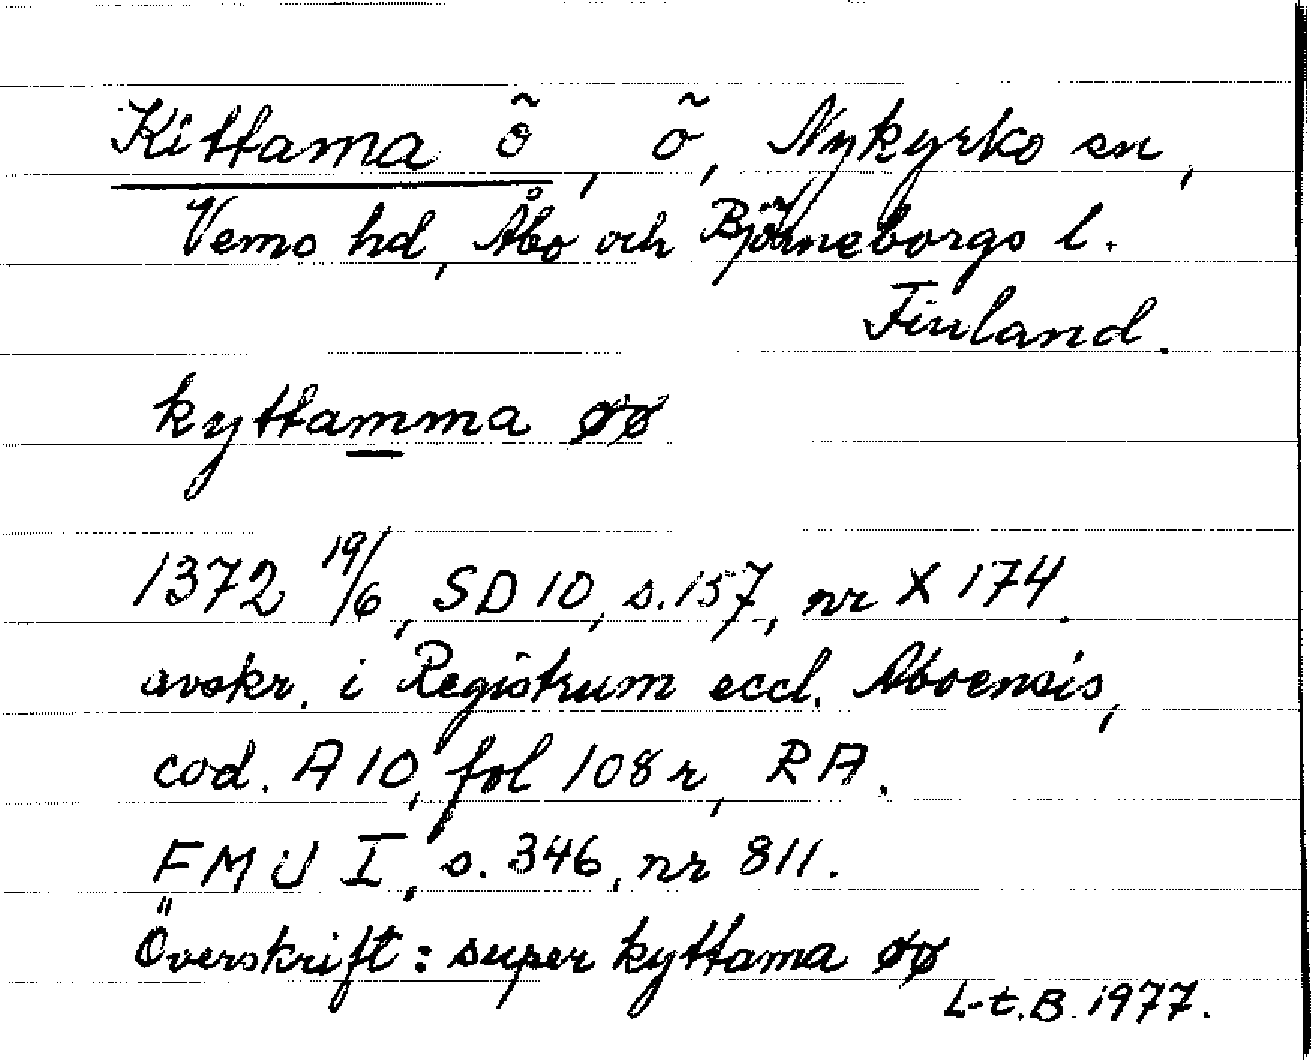 Kittama ö, ö, Nykyrko sn,
Vemo hd, Åbo och Björneborgs l.
Finland.
kyttamma øø
1372 19/6, SD 10, s.157, nr X 174.
avskr. i Registrum eccl. Aboensis,
cod. A 10, fol 108 r, RA.
FMU I, s. 346, nr 811.
Överskrift: super kyttama øø
L-t.B. 1977.